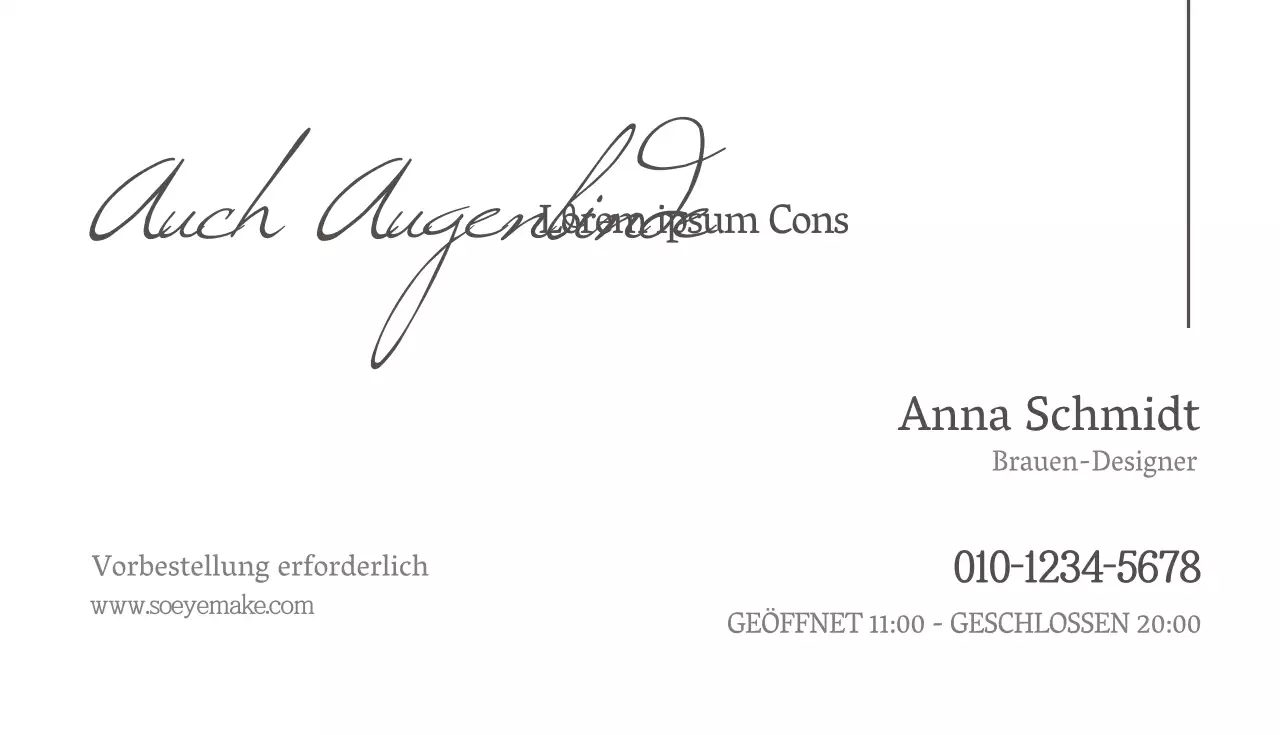 Auch Augenbinde
Lorem ipsum Cons
Anna Schmidt
Brauen-Designer
Vorbestellung erforderlich
www.soeyemake.com
010-1234-5678
GEÖFFNET 11:00 - GESCHLOSSEN 20:00